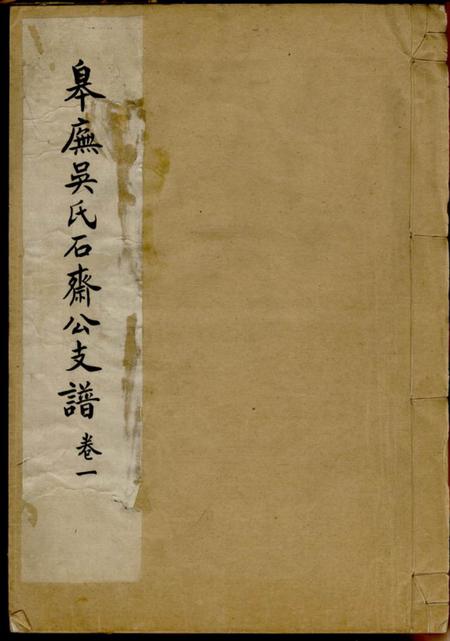 皋廡吳氏石齋公支譜 卷一